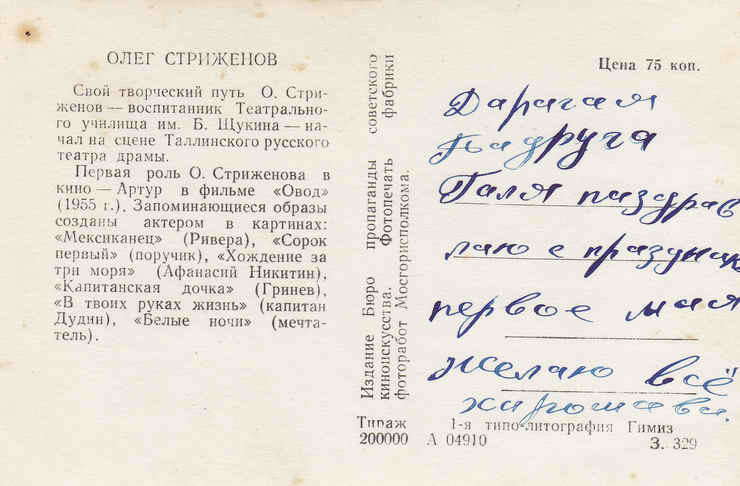 ОЛЕГ СТРИЖЕНОВ
Свой творческий путь О. Стри-
женов — воспитанник Театрально-
го училища им. Б. Щукина — на-
чал на сцене Таллинского русского
театра драмы.
Первая роль О. Стриженова в
кино — Артур в фильме «Овод»
(1955 г.). Запоминающиеся образы
созданы актером в картинах:
«Мексиканец» (Ривера), «Сорок
первый» (поручик), «Хождение за
три моря» (Афанасий Никитин),
«Капитанская дочка» (Гринев),
«В твоих руках жизнь» (капитан
Дудин), «Белые ночи» (мечта-
тель).
Издание Бюро пропаганды советского
киноискусства. Фотопечать фабрики
фоторабот Мосгорисполкома.
Тираж
200000
Цена 75 коп.
Дарагая
Падруга
Галя паздрав
лаю с праздник
первое мая
Желаю всё
харошева.
1-я типо-литография Гимиз
А 04910
З. 329